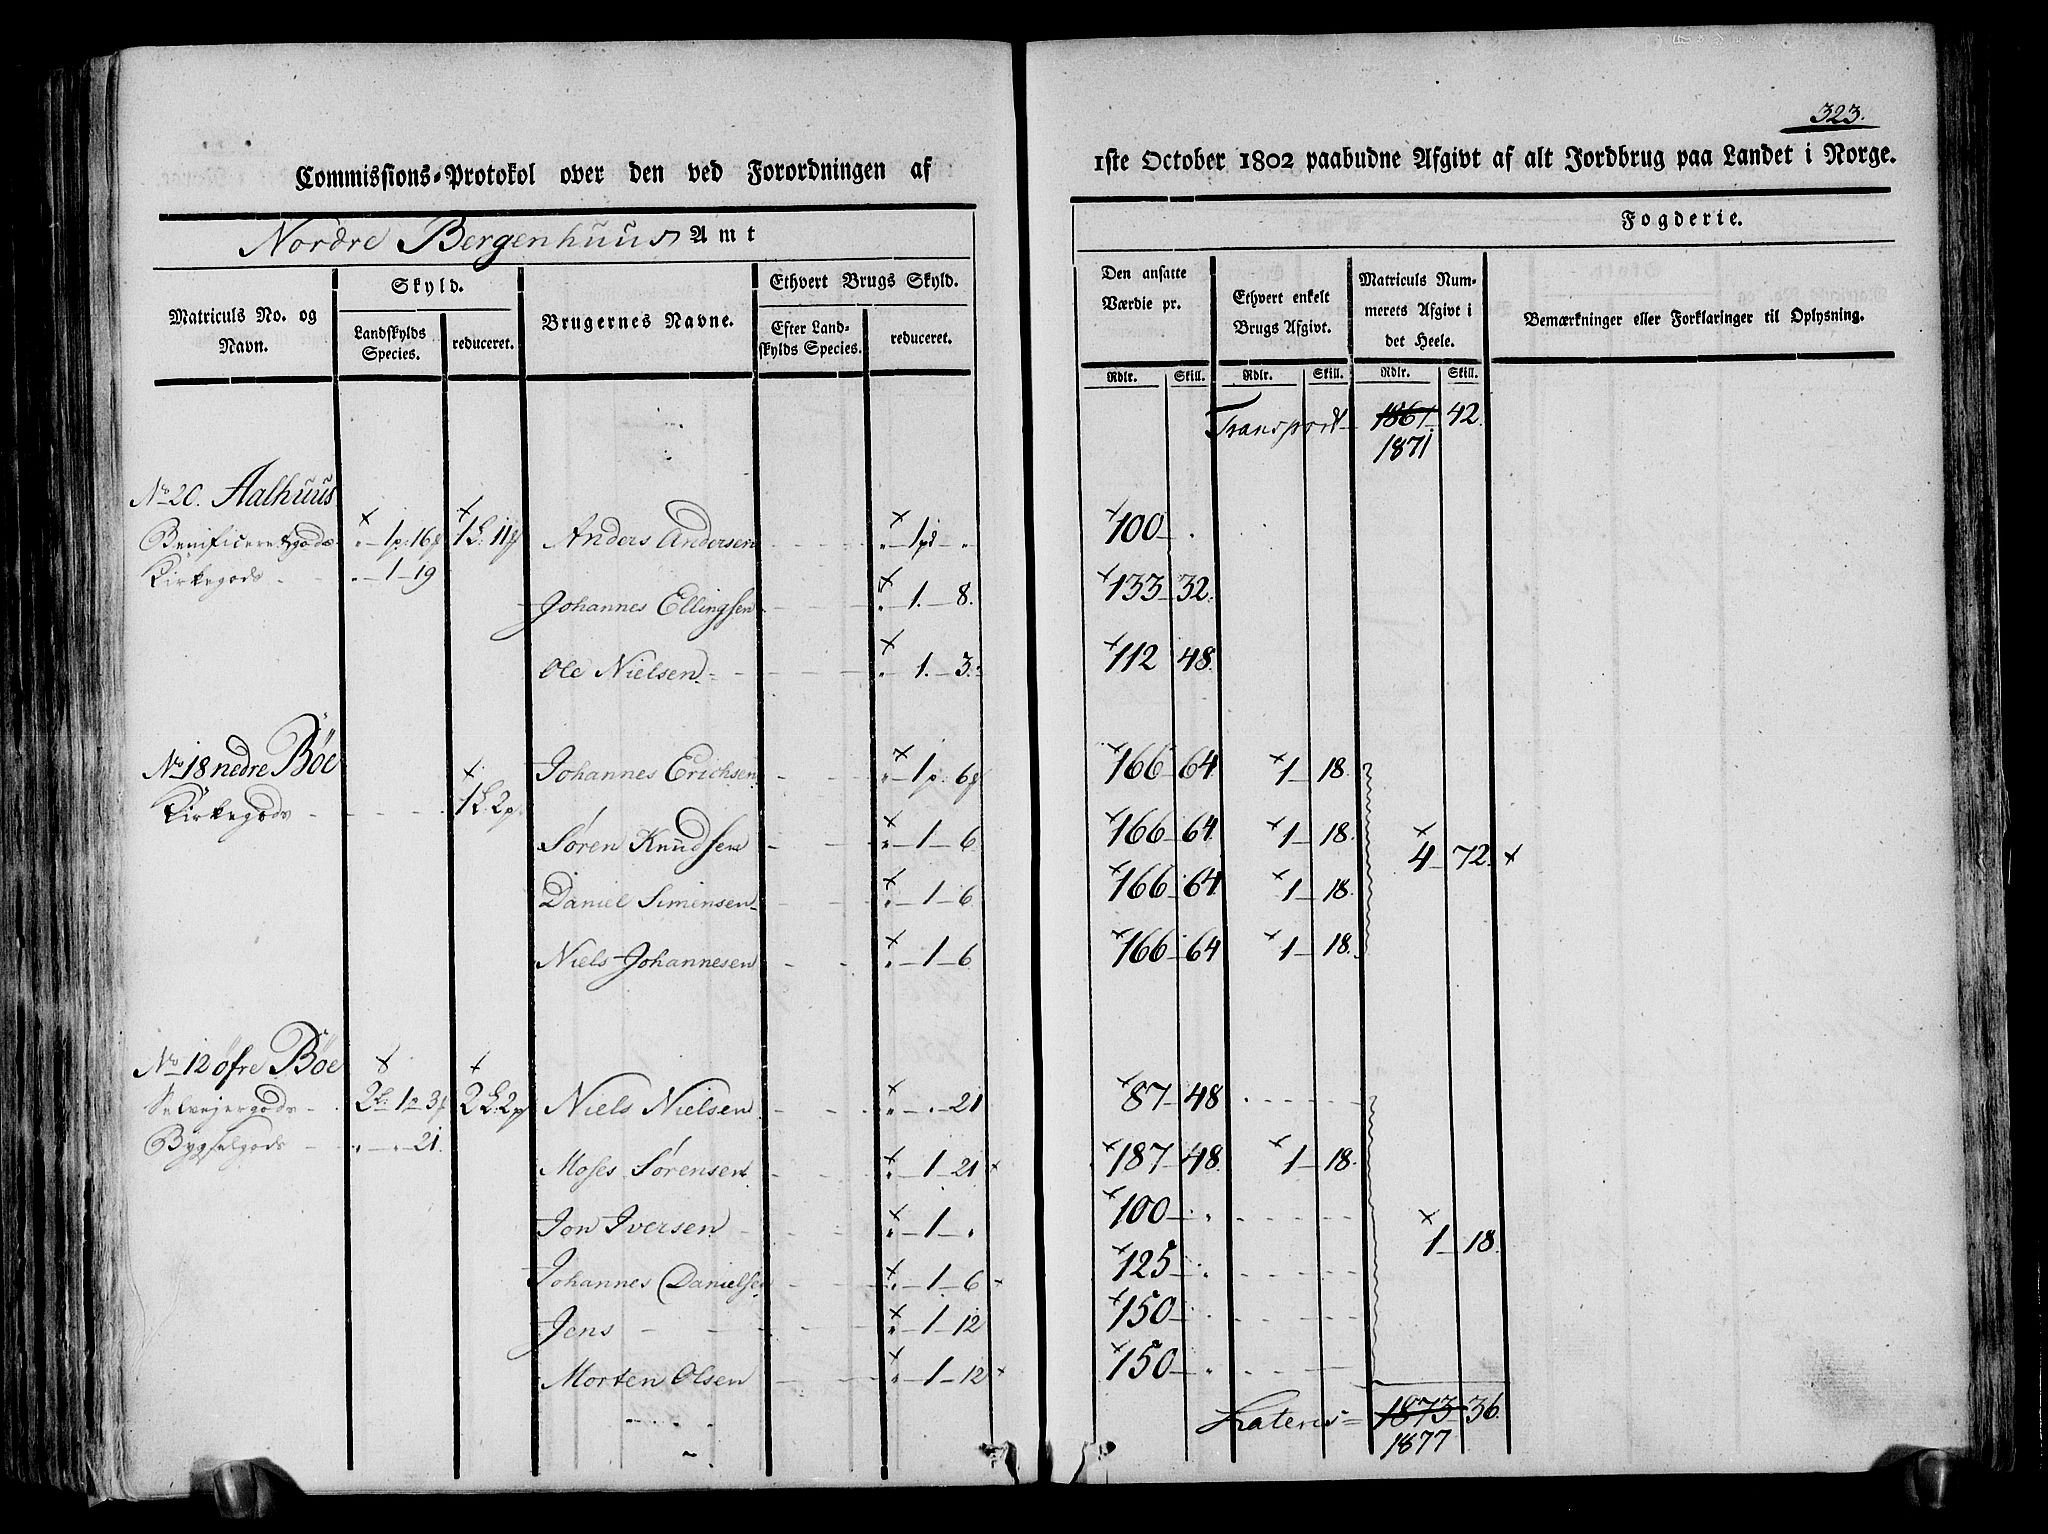 323.
Commissions-Protokol over den ved Forordningen af 1ste October 1802 paabudne Afgivt af alt Jordbrug paa Landet i Norge.
Nordre Bergenhuus Amt Fogderie.
Matriculs No. og Navn. Skyld. Landskylds Species. reduceret. Brugernes Navne. Ethvert Brugs Skyld. Efter Landskylds Species. reduceret. Den ansatte Værdie pr. Ethvert enkelt Brugs Afgivt. Matriculs Nummerets Afgivt i det Heele. Bemærkninger eller Forklaringer til Oplysning.
Rdlr. Skill. Rdlr. Skill. Rdlr. Skill.
Transport 1861 42
1871
No 20. Aalhuus
Benificeret gods 1p: 16f 1L: 11f Anders Andersen 1pd 100
Kirkegods 1 19
Johannes Ellingsen 1. 8. 133 32.
Ole Nielsen 1. 3. 112 48.
No 18 nedre Bøe Johannes Erichsen 1p: 6f 166 64 1 18.
Kirkegods 1L: 2p
Søren Knudsen 1 6 166 64 1 18. 4 72.
Daniel Simensen 1 6 166 64 1 18.
Niels Johannesen 1 6 166 64 1 18.
No 12 øfre Bøe
Selvejergods 2L: 1p 3f 2L: 2p Niels Nielsen 21 87 48
Bygselgods 21.
Moses Sørensen 1 21 187 48 1 18.
Jon Iversen 1 100
1 18.
Johannes Danielsen 1 6 125
Jens 1 12 150
Morten Olsen 1 12 150
Lateris 1873 36.
1877